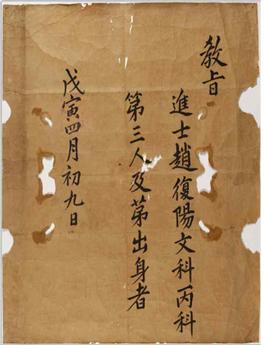 敎旨
進士趙復陽文科丙科
第三人及第出身者
戊寅四月初九日